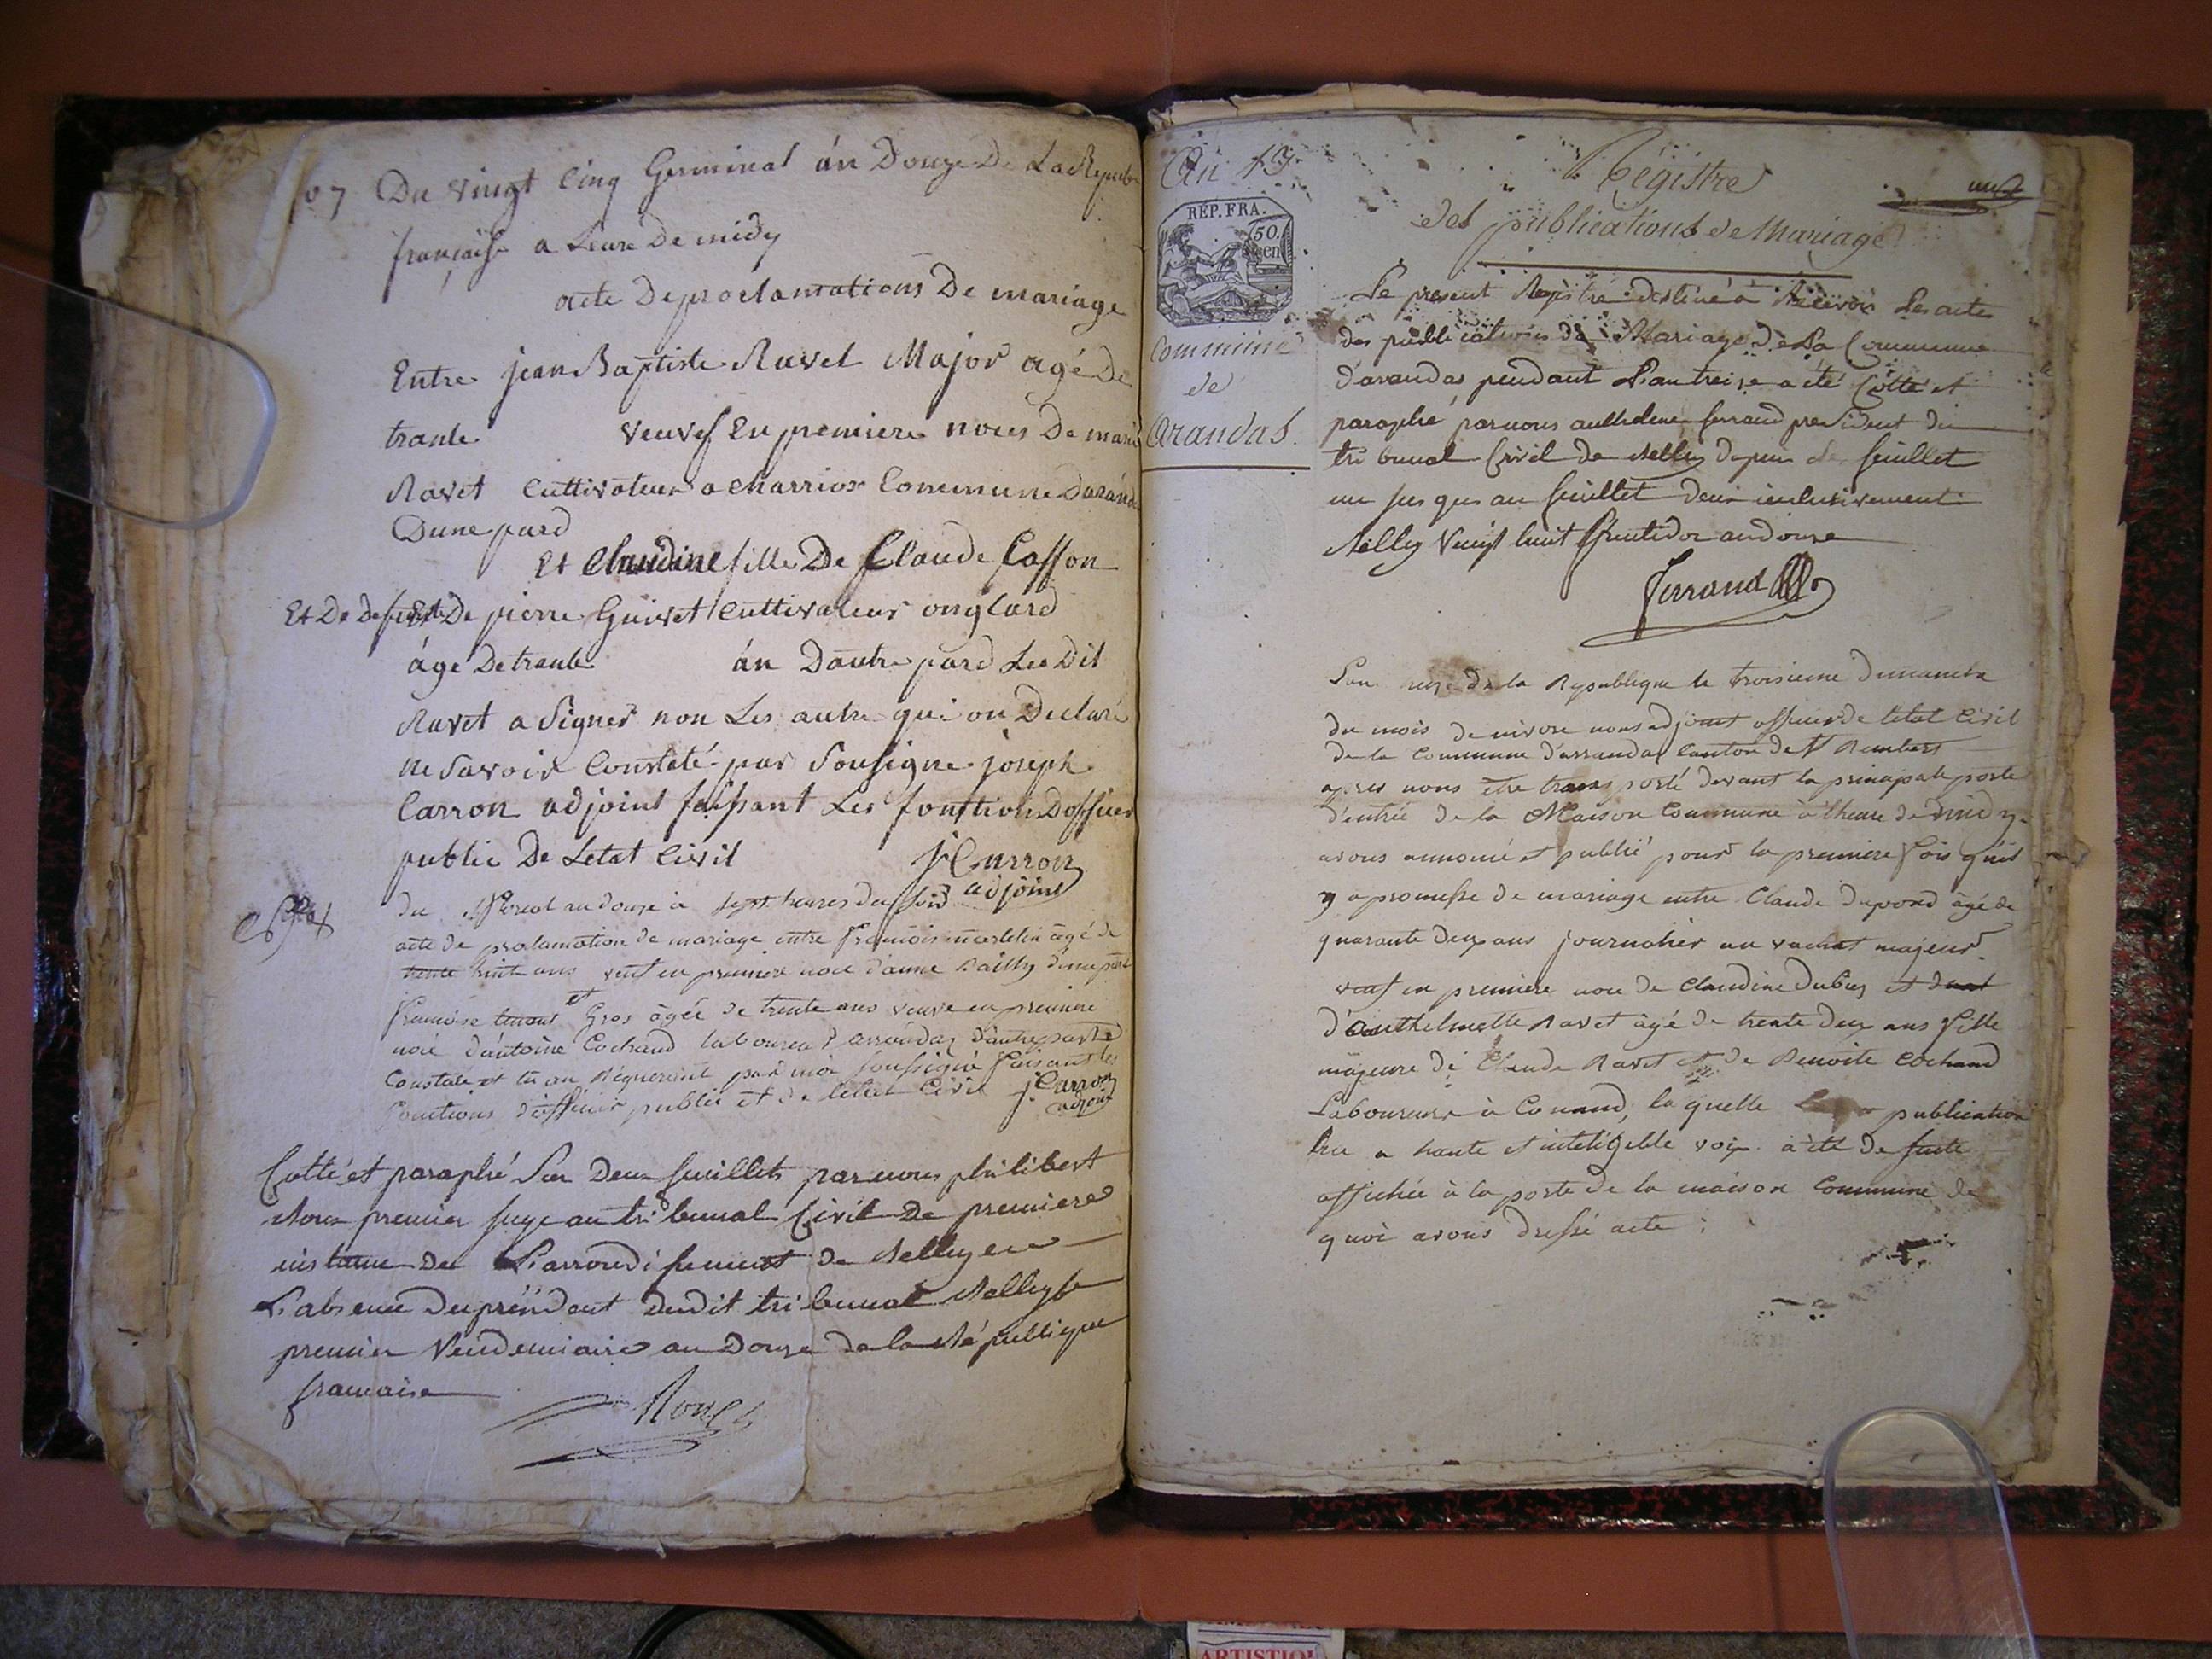 Du vingt Cinq Germinal án Douze De La Repub
française a Leure De midy
acte De proclamations De mariage
Entre jean Baptiste Ravet Major agé De
trante veuvef En premiere noces De marie
Ravet Cultivateur a Charriox Commune Darand
Dune pard
Et Claudine fille De Claude Casson
Et De defunte De pierre Guivet Cultivateur onglard
áge De trante án Dautre pard Les Dit
Ravet a Signer non Les autre qui on Declaré
ne Savoir Constaté par Sousigne joseph
Carron adjoint faissant Les fonction Doffisier
public De Letat Civil J Carron
adjoint
du floreal an douze à sept heures du soir
acte de proclamation de mariage entre François âgé de
trente huit ans veuf en premiere noce d'anne Bailly d'une part
et
Françoise Gros âgée de trente ans veuve en premiere
noce d'antoine Cochand laboureur arrandaz d'autre part
Constaté et lu au Requerant par moi soussigné faisant les
fonctions d'officier public et de letat Civil J. Carron
adjoint
Cotté et paraphé Sur Deux feuillets par nous philibert
Roux premier juge au tribunal Civil De premiere
instance De L'arrondissement de Belley en
L'absence du president dudit tribunal Belley le
premier Vendemiaire an Douze de la République
francaise
Roux
An 13.
REP. FRA.
50.
Cen
Commune
de
Arandas.
Régistre
des publications de Mariage
un
Le present Registre destiné à Recevoir Les actes
des publications de Mariage De La Commune
d'arandas pendant L'an treize a été Cotté et
paraphé par nous anthelme ferrand president du
tribunal Civil de Belley depuis le feuillet
un jusques au feuillet deux inclusivement
Belley Vingt huit fructidor an douze
Ferrand
L'an treize de la Republique le troisieme Dimanche
du mois de nivose nous adjoint officier de letat Civil
de la Commune d'arrandas Canton de St Rembert
apres nous être transporté devant la principale porte
d'entrée de la Maison Commune à l'heure de midy
avons annoncé et publié pour la premiere fois qu'il
y a promesse de mariage entre Claude Dupond âgé de
quarante deux ans journalier au vachat majeur
veuf en premiere noce de Claudine Dubuy et
d'anthelmette Ravet âgé de trente deux ans fille
majeure de Claude Ravet et de Benoite Cochand
Laboureur à Conand, laquelle publication
lue a haute et inteligible voix a été de suite
affichée à la porte de la maison Commune de
quoi avons dressé acte :
ARTISTIQU